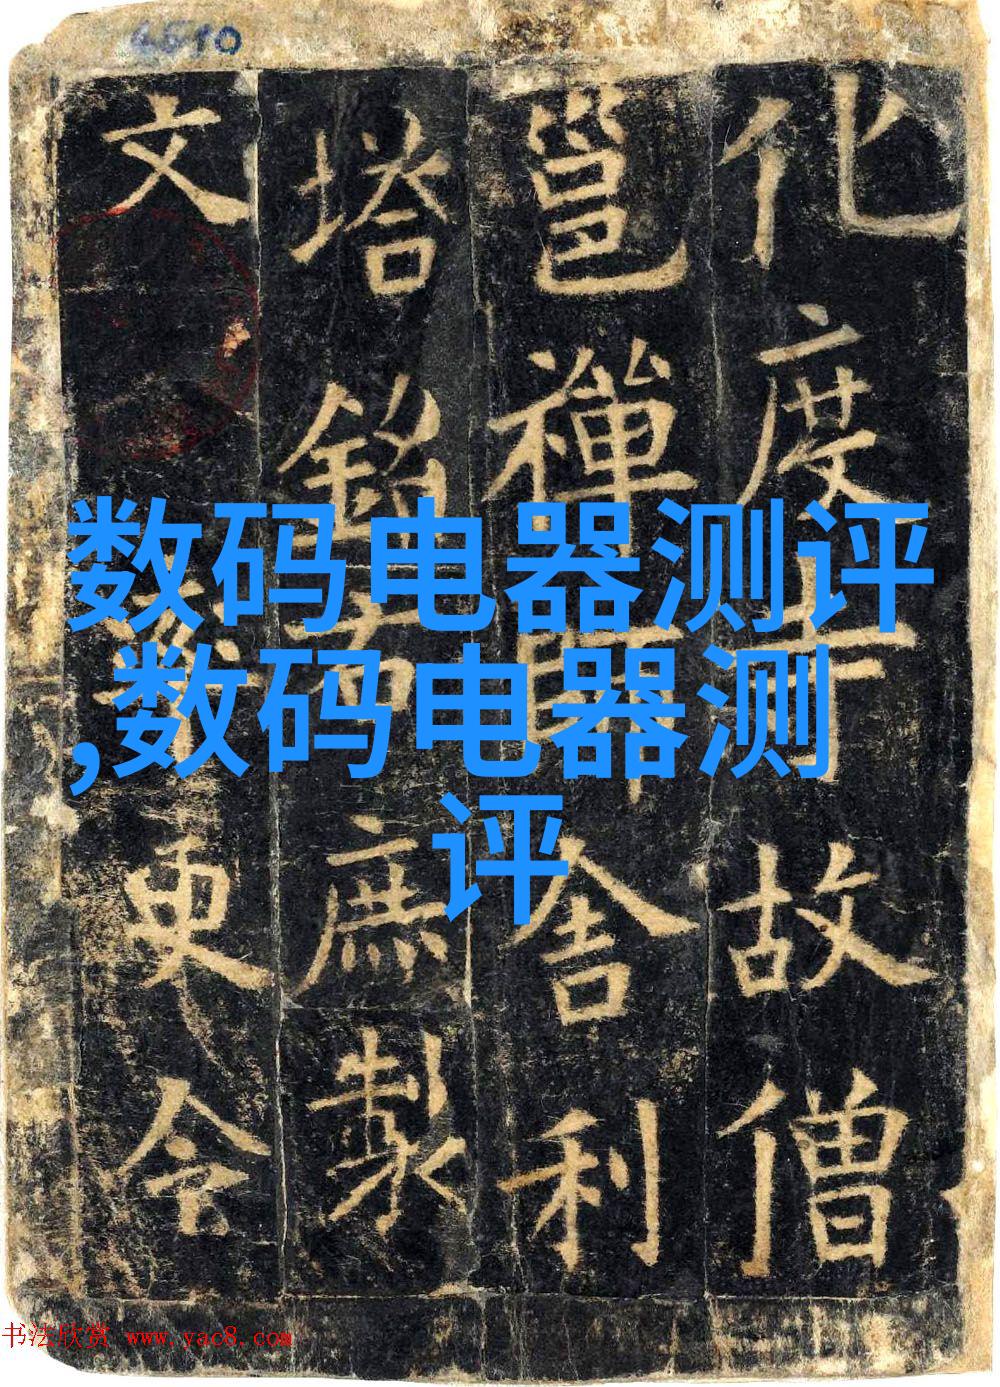 数码电器测评
,数码电器测
评
化度寺故僧
邕禪師舍利
塔銘右庶製
文率更令
书法欣赏 www.yac8.com